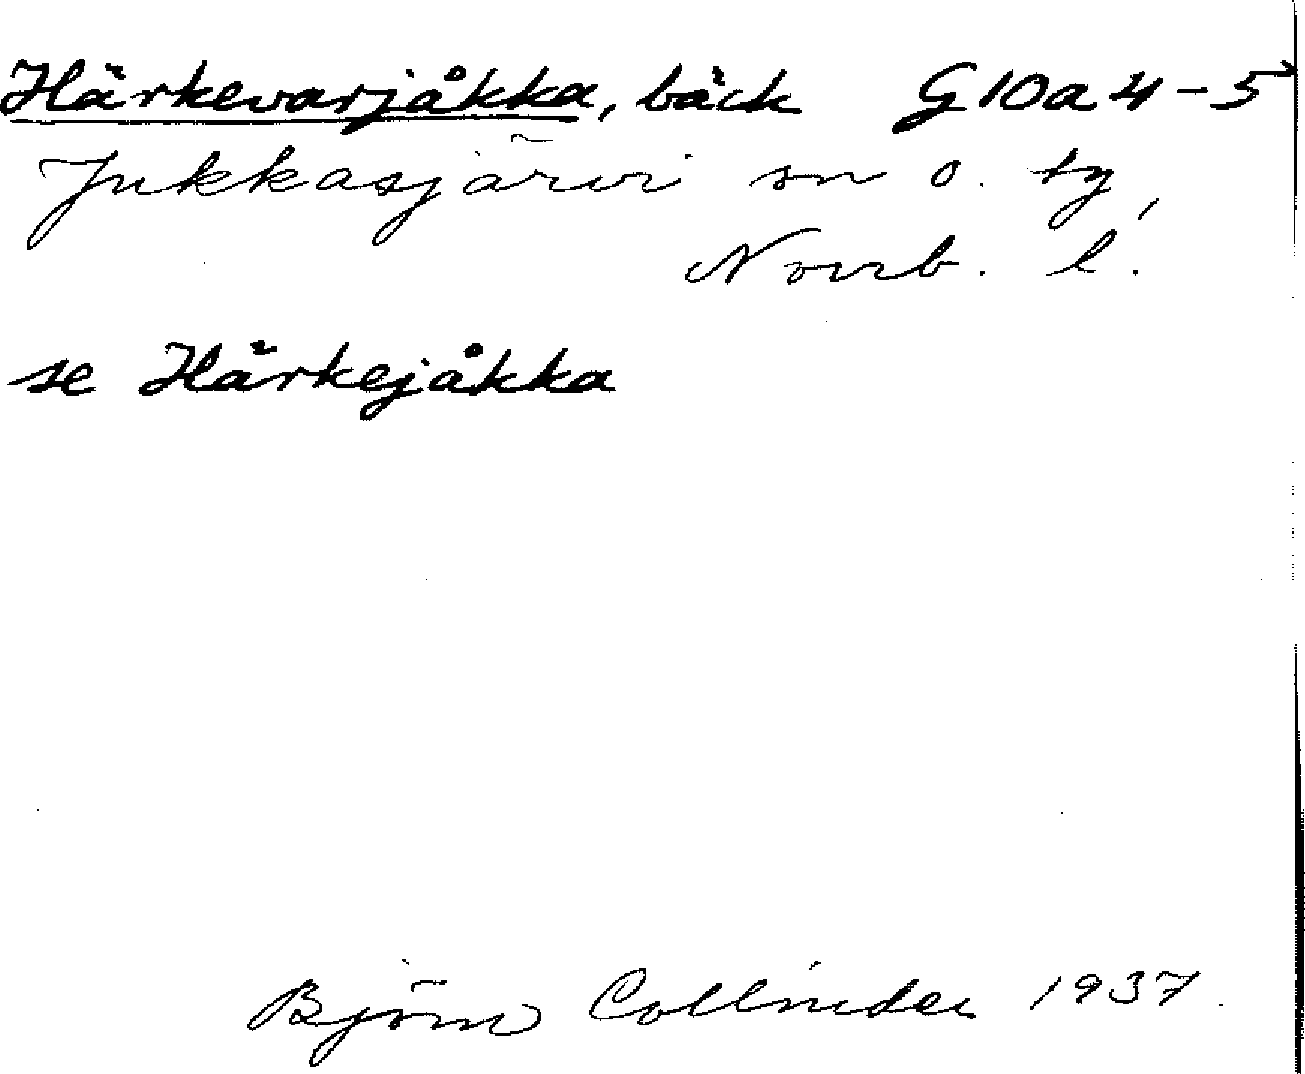 Härkevarjåkka, bäck G10a4-5
Jukkasjärvi sn o. tg,
Norrb. l.
se Härkejåkka
Björn Collinder 1937.